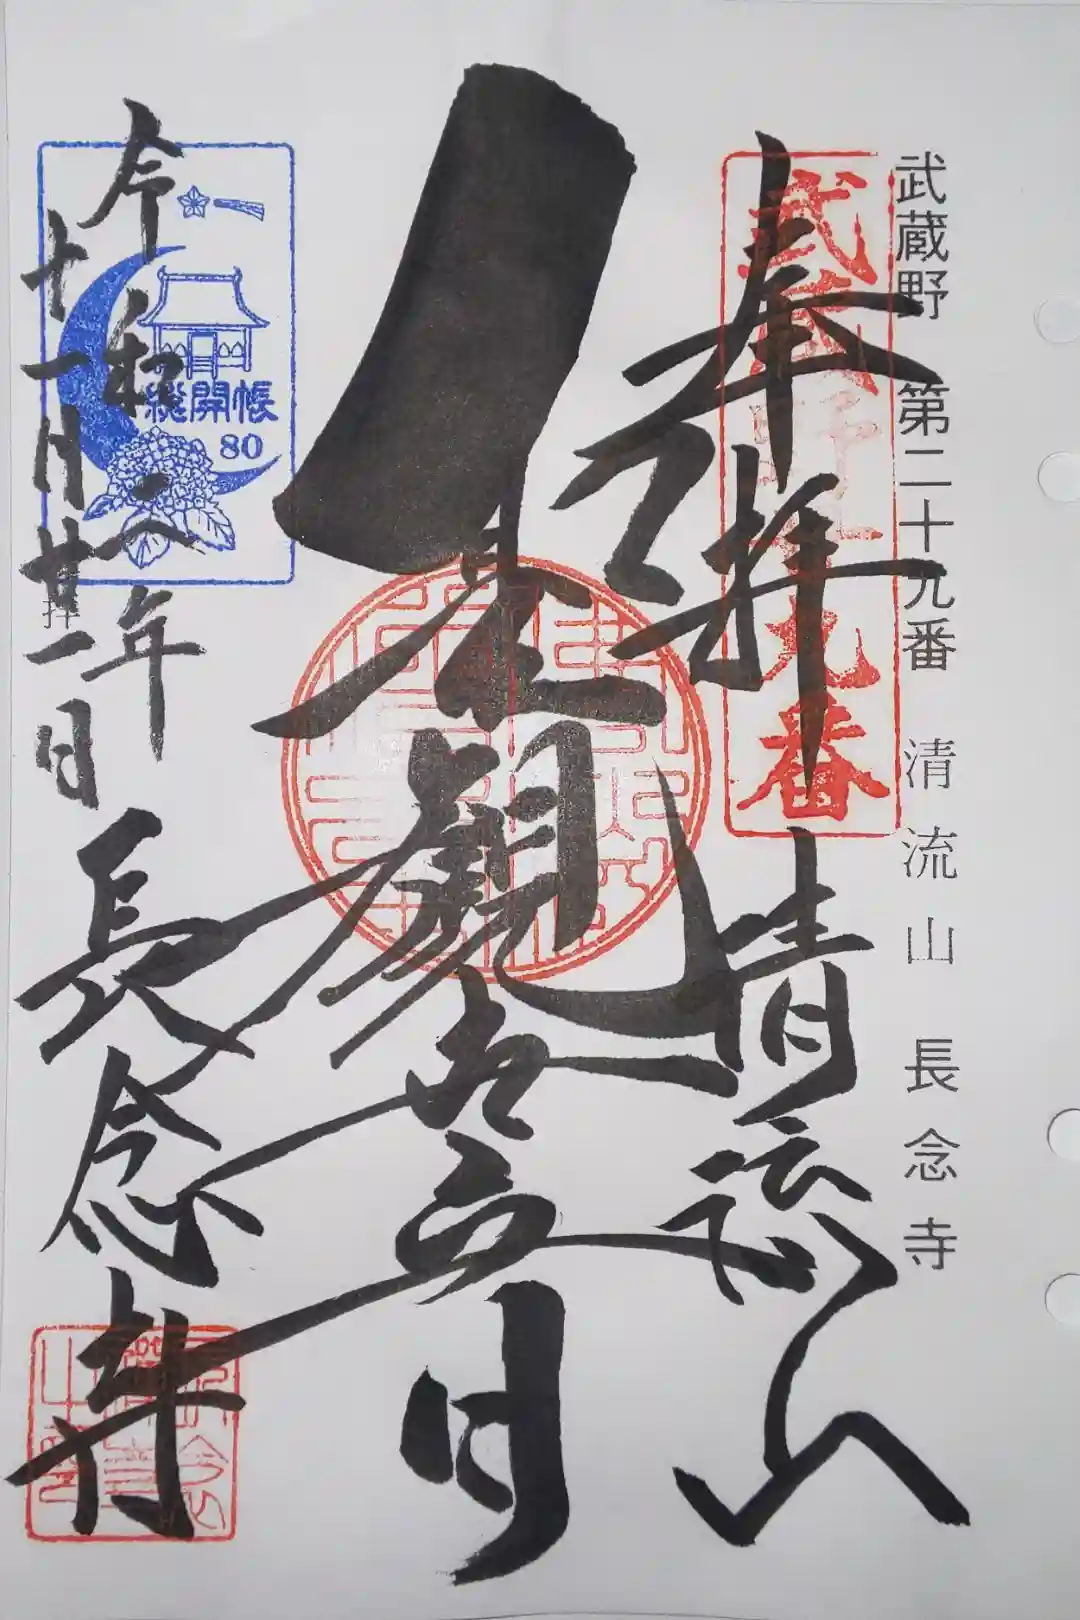 武蔵野 第二十九番 清流山 長念寺
武蔵野廿九番
奉拝 清流山
聖観世音
総開帳
80
令和二年
十一月廿一日
拝
長念寺